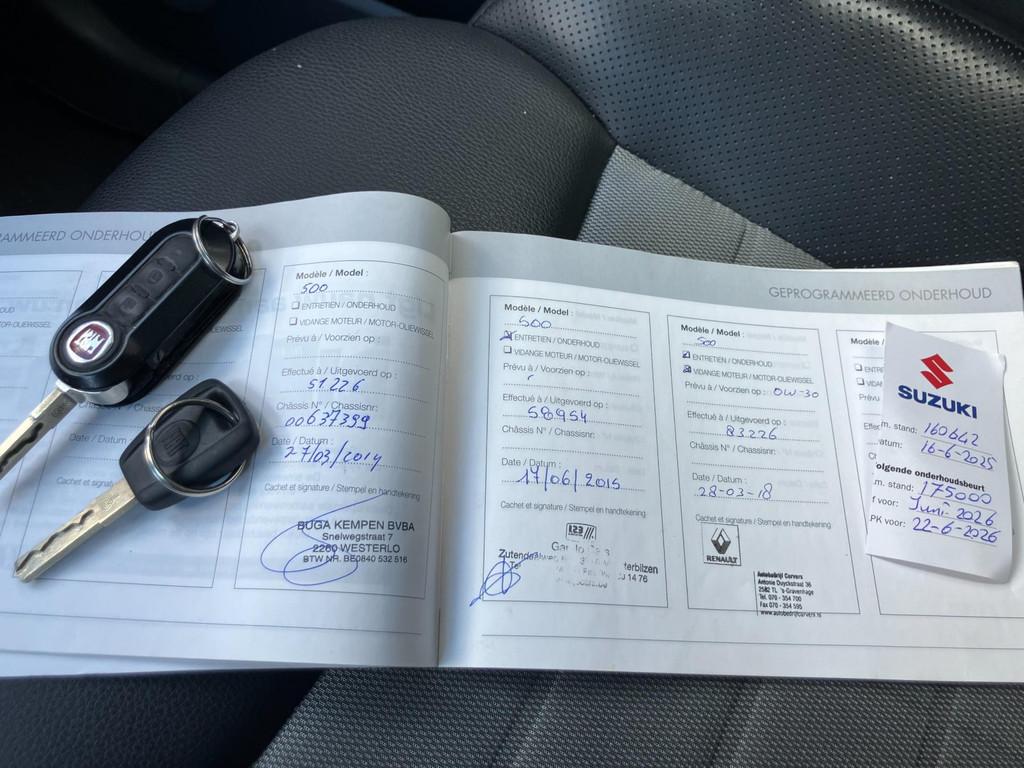 GEPROGRAMMEERD ONDERHOUD
Modèle / Model :
500
ENTRETIEN / ONDERHOUD
VIDANGE MOTEUR / MOTOR-OLIEWISSEL
Prévu à / Voorzien op :
Effectué à / Uitgevoerd op :
51.226
Châssis N° / Chassisnr:
00637399
Date / Datum :
27/03/2014
Cachet et signature / Stempel en handtekening
BUGA KEMPEN BVBA
Snelwegstraat 7
2260 WESTERLO
BTW NR. BE0840 532 516
Modèle / Model :
500
ENTRETIEN / ONDERHOUD
VIDANGE MOTEUR / MOTOR-OLIEWISSEL
Prévu à / Voorzien op :
Effectué à / Uitgevoerd op :
58954
Châssis N° / Chassisnr:
Date / Datum :
17/06/2015
Cachet et signature / Stempel en handtekening
123
terbilzen
14 76
Modèle / Model :
500
ENTRETIEN / ONDERHOUD
VIDANGE MOTEUR / MOTOR-OLIEWISSEL
Prévu à / Voorzien op : 0W-30
Effectué à / Uitgevoerd op :
83226
Châssis N° / Chassisnr:
Date / Datum :
28-03-18
Cachet et signature / Stempel en handtekening
RENAULT
Autobedrijf Corvers
Antonie Duyckstraat 36
2582 TL 's-Gravenhage
Tel. 070 - 354 700
Fax 070 - 354 595
www.autobedrijfcorvers.nl
Modèle /
SUZUKI
m. stand: 160642
atum: 16-6-2025
olgende onderhoudsbeurt
.m. stand: 175000
f voor: Juni 2026
PK voor: 22-6-2026